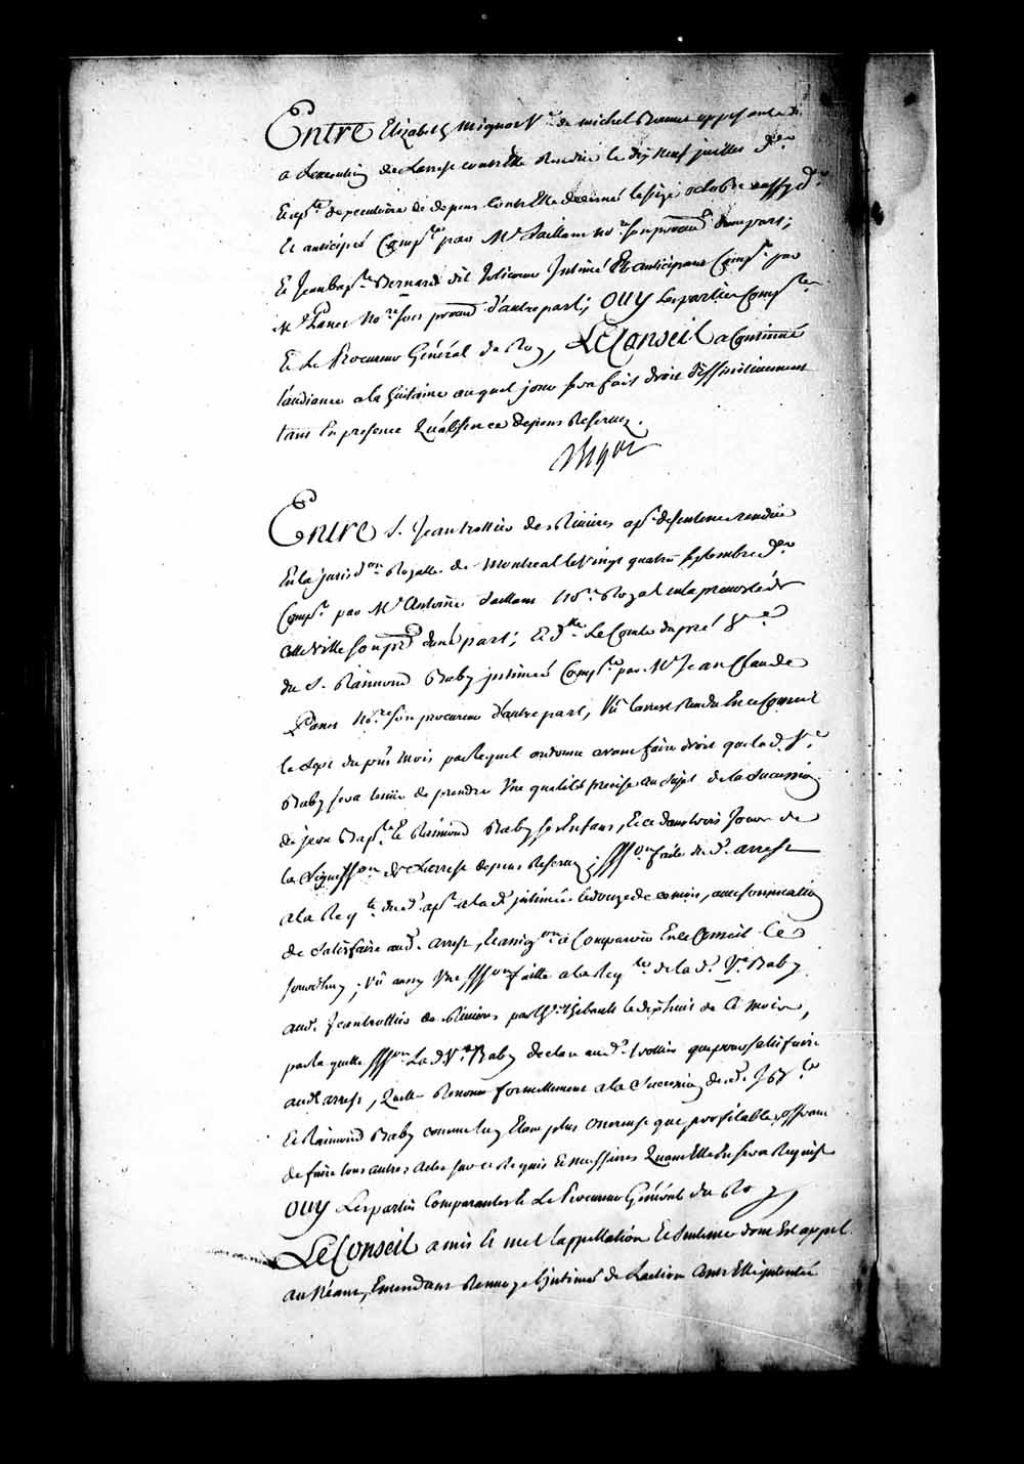 Entre Elizabeth Mignot Ve de michel Brunet opposante
a Lexecution de Larrest contre Elle Rendue le dix Neuf juillet der
Et apte d'executoire de depens contr Elle decerné le seize octobre aussy der
Et anticipée Compte par Me Saillant nore son procur d'une part;
Et Jean bapte Bernard dit Jolicoeur Intimé Et anticipant Compt par
Me Panet Nore son procur d'autre part; OUY Les parties Comptes
Et Le Procureur Général du Roy, LE Conseil a Continué
l'audiance a la huitaine auquel jour sera fait droit deffinitivement
tant En presence Qu'absence depens Reservez.
Bigot
Entre S. Jean trottier des Rivieres apt de sentence rendüe
En la jurison Royalle de Montreal le vingt quatre septembre der
Compt par Me Antoine Saillant nore Royal en la prevosté de
cette Ville son pr d'une part; Et dlle Le Comte dupré Ve
du S. Raimond Baby intimée Compte par Me Jean Claude
Panet nore son procureur d'autre part, Vû larrest Rendu En ce Conseil
le Sept du prest mois par lequel ordonne avant faire droit que la d. Ve
Baby sera tenüe de prendre Une qualité precise au Sujet de la Succession
de jean Bapte Et Raimond Baby ses Enfans, Et ce dans trois Jours de
la Signiffon de Larrest depens Reservez; Siffon faite du d. arrest
a la Reqte du d. apt a la d. intimée le douze de ce mois, avec sommation
de Satisfaire aud. arrest, Et assigon a Comparoir En le Conseil Ce
jourdhuy; Vû aussy Une Siffon faitte a la Reqte de la d. Ve Baby
aud. Jean trottier des Rivieres par thibault le dix huit de Ce mois,
par la quelle Siffon La d Ve Baby declare aud. trottier que pour satisfaire
aud arrest, Quelle Renonce formellement a la Succession desd. Jbte
Et Raimond Baby comme luy Etant plus onereuse que proffitable, offrant
de faire tous autres Actes sur ce Requis Et necessaires Quand Elle En sera Requise
OUY Les parties Comparantes Et Le Procureur Général du Roy,
LE Conseil a mis Et met l'appellation Et Sentence dont Est appel
au Néant, Emendant Renvoye l'intimée de Laction Contr Elle intentée